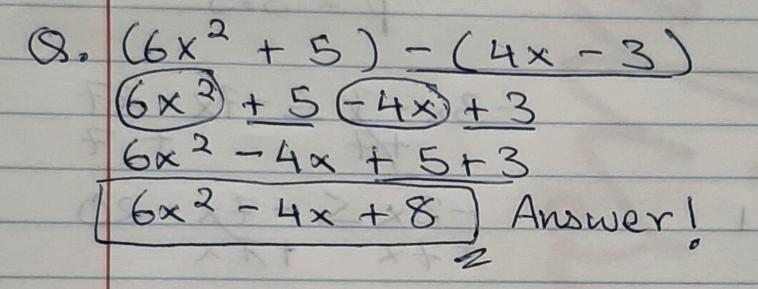 Q. (6x² + 5) - (4x - 3)
6x² + 5 - 4x + 3
6x² - 4x + 5 + 3
6x² - 4x + 8 Answer!